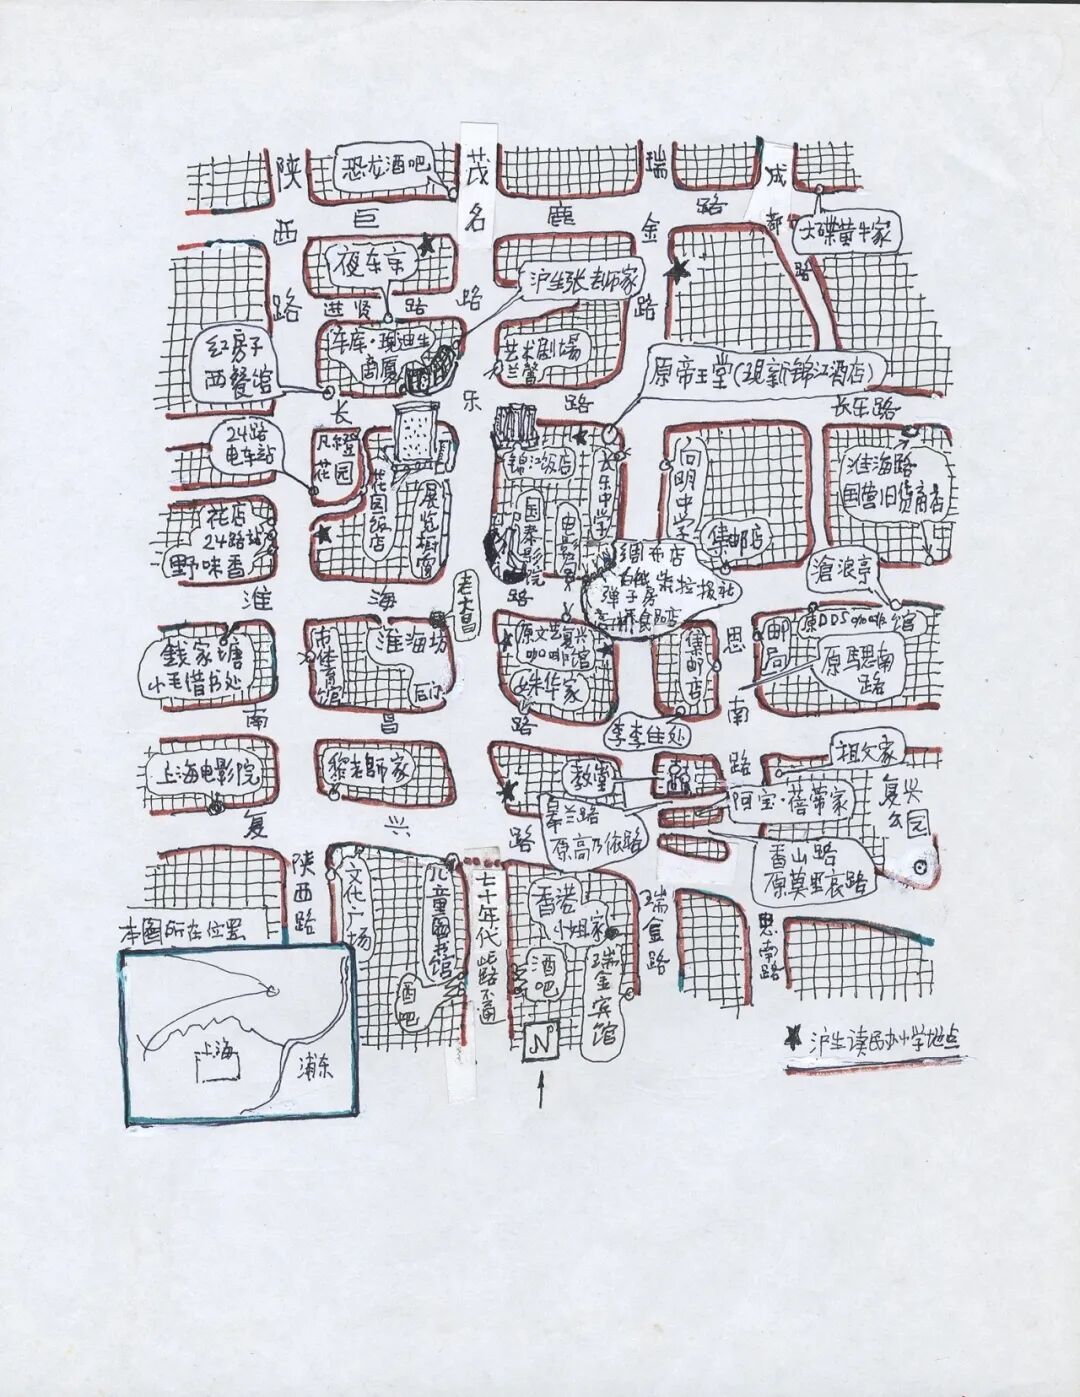 恐龙酒吧
茂名路
陕西路
巨鹿路
瑞金路
成都路
大碟黄牛家
夜东京
进贤路
沪生张老师家
红房子
西餐馆
车库·现迪生
商厦
艺术剧場
兰馨
原帝王堂(現新锦江酒店)
长乐路
长乐路
24路
电车站
凡尔登
花园
花园飯店
展览橱窗
锦江飯店
国泰影院
长乐中学
向明中学
集邮店
淮海路
国营旧货商店
花店
24路站
野味香
淮海路
老大昌
绸布店
弹子房
滄浪亭
原DDS咖啡馆
邮局
思南路
原馬思南
路
錢家塘
小毛借书处
市体育馆
淮海坊
后门
原文艺复兴
咖啡馆
姝华家
集邮店
李李住处
南昌路
上海电影院
黎老師家
教堂
祖父家
阿宝·蓓蒂家
复兴
公园
皋兰路
原高乃依路
香山路
原莫里哀路
复兴路
陕西路
文化广场
儿童图书馆
酒吧
七十年代此路不通
香港
小姐家
酒吧
瑞金宾馆
瑞金路
思南路
本图所在位置
上海
浦东
N
★沪生读民办小学地点